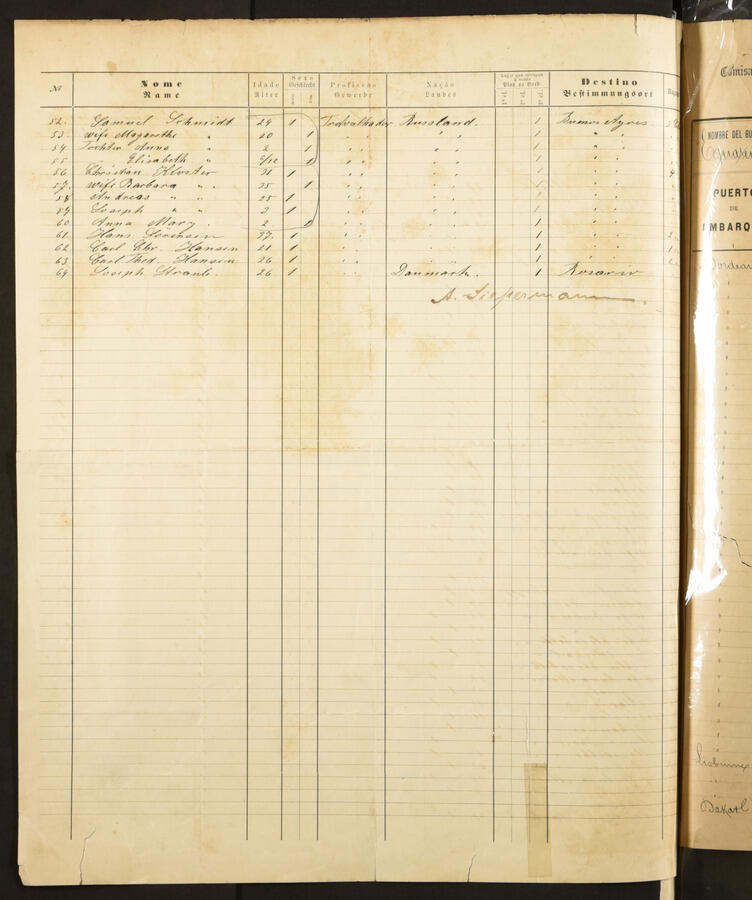 Nº Nome Name Idade Alter Sexo Geschlecht Profissão Gewerbe Nação Landes Plan an Bord Destino Bestimmungsort
52. Samuel Schmidt 29 1 Russland. 1 Buenos Ayres
53. wife Magarethe " 20 1 " " 1 " "
54. Tochter Anna " 2 1 " " 1 " "
55 " Elisabeth " 1 " " 1 " "
56 Christian 31 1 " " 1 " "
57. wife Barbara " " 25 1 " " 1 " "
58 Andreas " " 25 1 " " 1 " "
59 Joseph " " 3 1 " " 1 " "
60. Anna Mary. 2 " " 1 " "
61. Hans 27. 1 " " 1 " "
62 Carl Chr. Hansen 21 1 " " 1 " "
63 Carl Thed. Hansen 26 1 " " 1 " "
64 Joseph Straub. 26 1 " " Danmark. 1 Rosario
A. Siepermann.
Comisa
NOMBRE DEL BU
PUERTO
DE
EMBARQ
Dakar